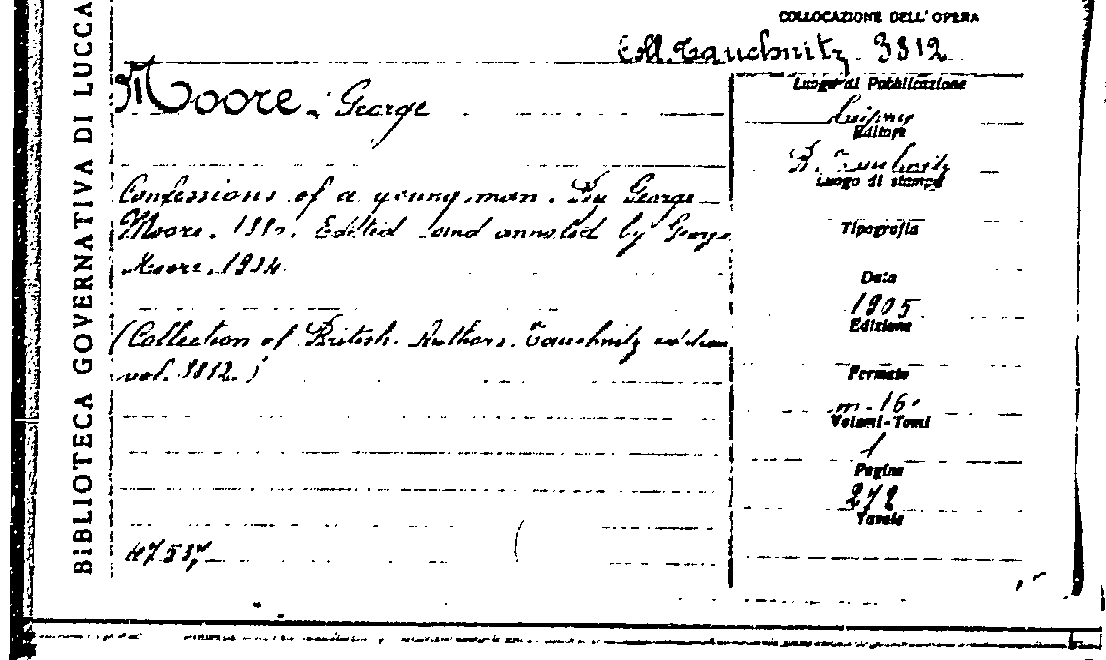 BIBLIOTECA GOVERNATIVA DI LUCCA
COLLOCAZIONE DELL'OPERA
Coll. Tauchnitz. 3812
Moore - George
Confessions of a young man. By George
Moore. Edited and annoted by George
Moore.
(Collection of British Authors. Tauchnitz edition
vol. 3812.)
Luogo di Pubblicazione
Leipzig
Editore
B. Tauchnitz
Luogo di stampa
Tipografia
Data
1905
Edizione
Formato
m-16°
Volumi-Tomi
1
Pagine
272
Tavole